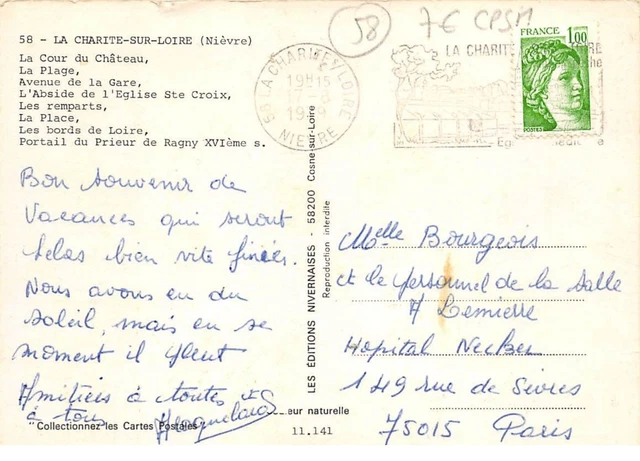 58
7€ CPSM
58 - LA CHARITE-SUR-LOIRE (Nièvre)
La Cour du Château,
La Plage,
Avenue de la Gare,
L'Abside de l'Eglise Ste Croix,
Les remparts,
La Place,
Les bords de Loire,
Portail du Prieur de Ragny XVIème s.
58 LA CHARITE S/LOIRE
19H15
NIEVRE
LA CHARITE
FRANCE 1,00
POSTES
Bon souvenir de
Vacances qui seront
hélas bien vite finies.
Nous avons eu du
soleil, mais en se
moment il pleut
Amitiés à toutes et
à tous
LES ÉDITIONS NIVERNAISES - 58200 Cosne-sur-Loire
Reproduction interdite
Melle Bourgeois
et le personnel de la Salle
A Lemierre
Hopital Necker
149 rue de Sèvres
75015 Paris
eur naturelle
"Collectionnez les Cartes Postales"
11.141